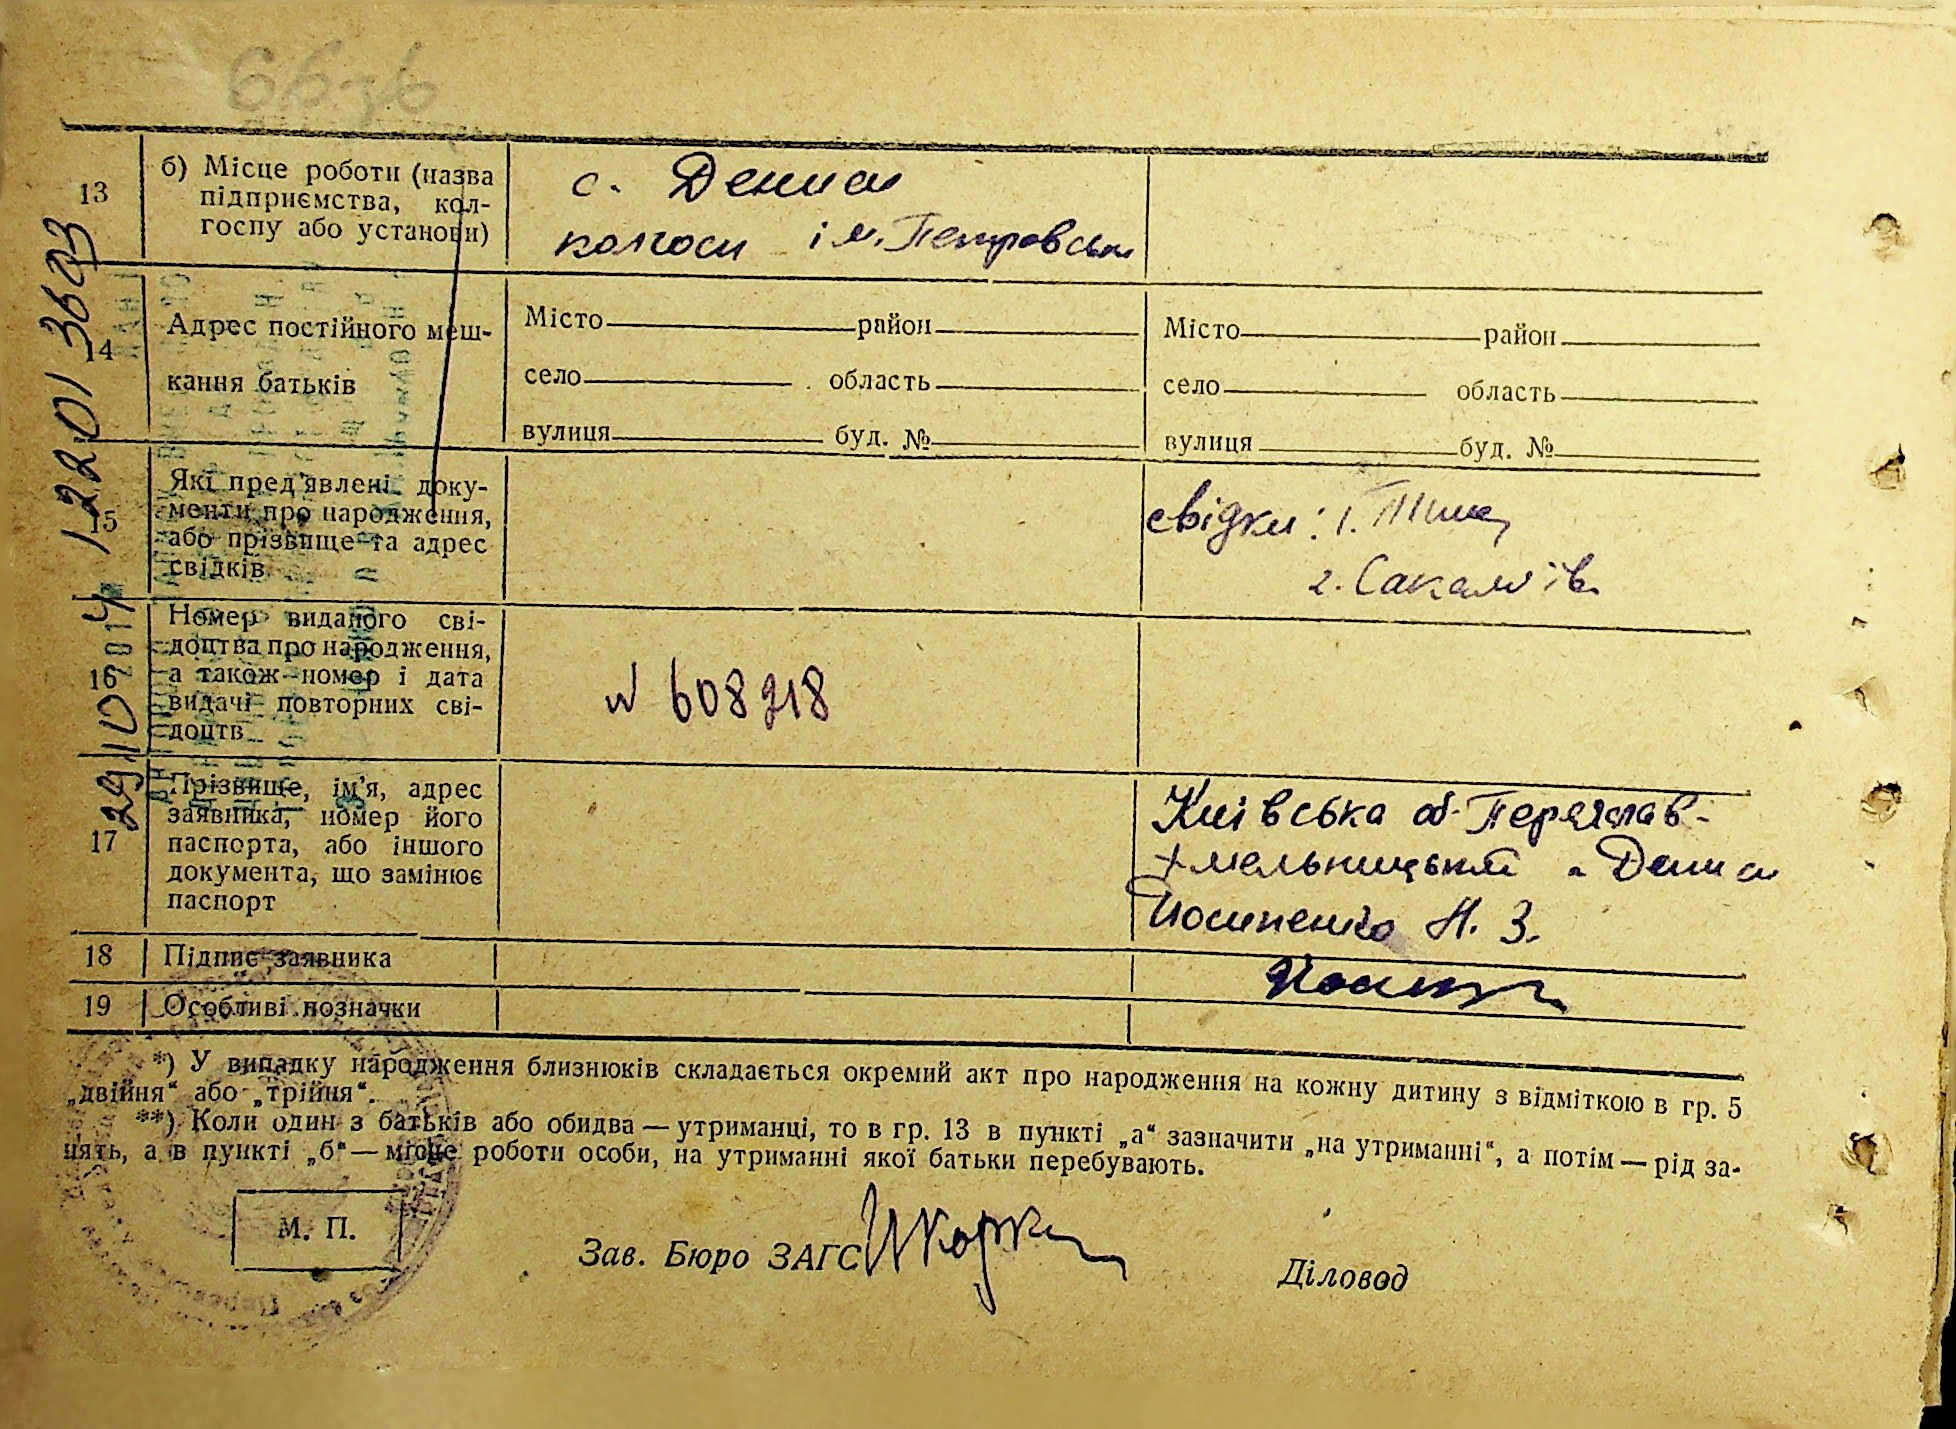 13
б) Місце роботи (назва
підприємства, кол-
госпу або установи)
с. Дениси
колгосп ім. Петровськ
14
Адрес постійного меш-
кання батьків
Місто район
село область
вулиця буд. №
Місто район
село область
вулиця буд. №
15
Які пред'явлені доку-
менти про народження,
або прізвище та адрес
свідків
свідки: 1.
2.
16
Номер виданого сві-
доцтва про народження,
а також номер і дата
видачі повторних сві-
доцтв
N 608718
17
Прізвище, ім'я, адрес
заявника, номер його
паспорта, або іншого
документа, що замінює
паспорт
Київська об. Переяслав-
Хмельницький с. Дениси
Йосипенко Н. З.
18 Підпис заявника
19 Особливі позначки
*) У випадку народження близнюків складається окремий акт про народження на кожну дитину з відміткою в гр. 5
„двійня“ або „трійня“.
**) Коли один з батьків або обидва — утриманці, то в гр. 13 в пункті „а“ зазначити „на утриманні“, а потім — рід за-
нять, а в пункті „б“ — місце роботи особи, на утриманні якої батьки перебувають.
М. П.
Зав. Бюро ЗАГС
Діловод
29/10 2014 122013603